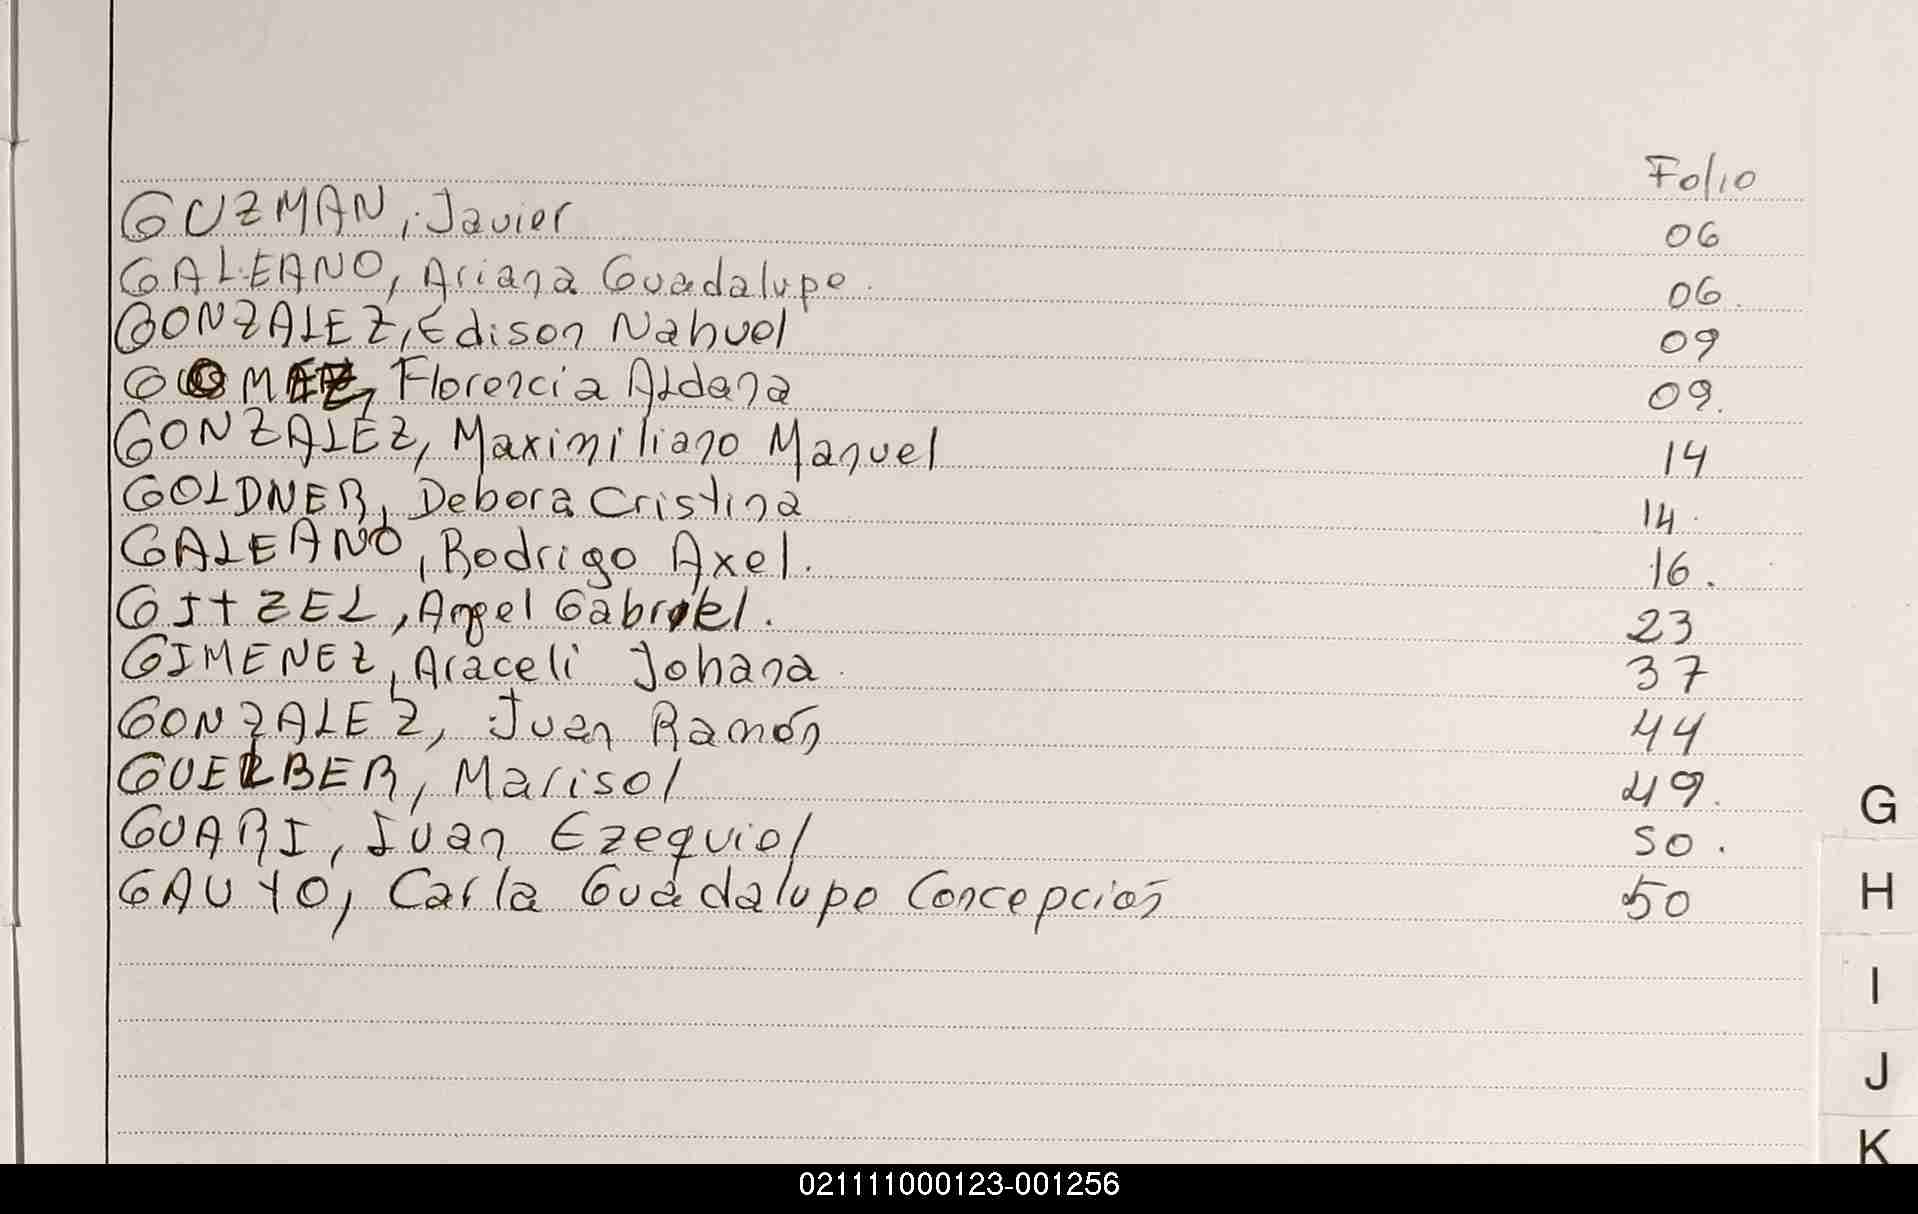 Folio
GUZMAN, Javier 06
GALEANO, Ariana Guadalupe. 06.
GONZALEZ, Edison Nahuel 09
GOMEZ, Florencia Aldana 09.
GONZALEZ, Maximiliano Manuel 14
GOLDNER, Debora Cristina 14.
GALEANO, Rodrigo Axel. 16.
GITZEL, Angel Gabriel. 23
GIMENEZ, Araceli Johana. 37
GONZALEZ, Juan Ramón 44
GUERBER, Marisol 49.
GUARI, Juan Ezequiel 50.
GAUTO, Carla Guadalupe Concepción 50
G
H
I
J
K
021111000123-001256